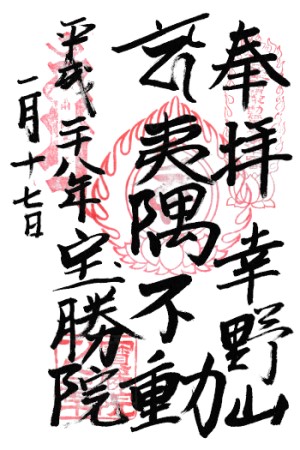 奉拝 幸野山
夷隅不動
宝勝院
平成二十八年
一月十七日